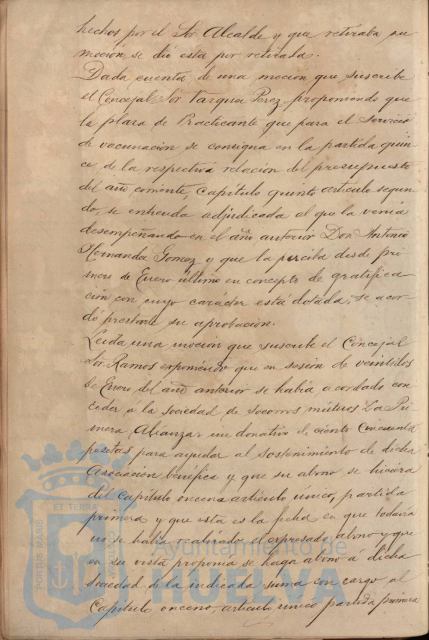 hechos por el Sor Alcalde y que retiraba su
moción, se dió esta por retirada.
Dada cuenta de una moción que suscribe
el Concejal Sor Vazquez Perez, proponiendo que
la plaza de Practicante que para el servicio
de vacunación se consigna en la partida quin
ce de la respectiva relación del presupuesto
del año corriente, Capítulo quinto artículo segun
do, se entienda adjudicada al que la venía
desempeñando en el año anterior Don Antonio
Hernandez Gomez y que la perciba desde pri
mero de Enero último en concepto de gratifica
ción con cuyo caracter está dotada; se acor
dó prestarle su aprobación.
Leida una moción que suscribe el Concejal
Sor Ramos exponiendo que en sesión de veintidos
de Enero del año anterior se había acordado con
ceder a la sociedad de socorros mútuos La Pri
mera Alianza un donativo de ciento cincuenta
pesetas para ayudar al sostenimiento de dicha
Asociación benéfica y que su abono se hiciera
del Capítulo onceno artículo unico, partida
primera y que esta es la fecha en que todavía
no se había realizado el expresado abono y que
en su vista proponia se haga abono á dicha
sociedad de la indicada suma con cargo al
Capítulo onceno, artículo unico partida primera
PORTUS MARIS
ET TERRÆ
Ayuntamiento de
HUELVA